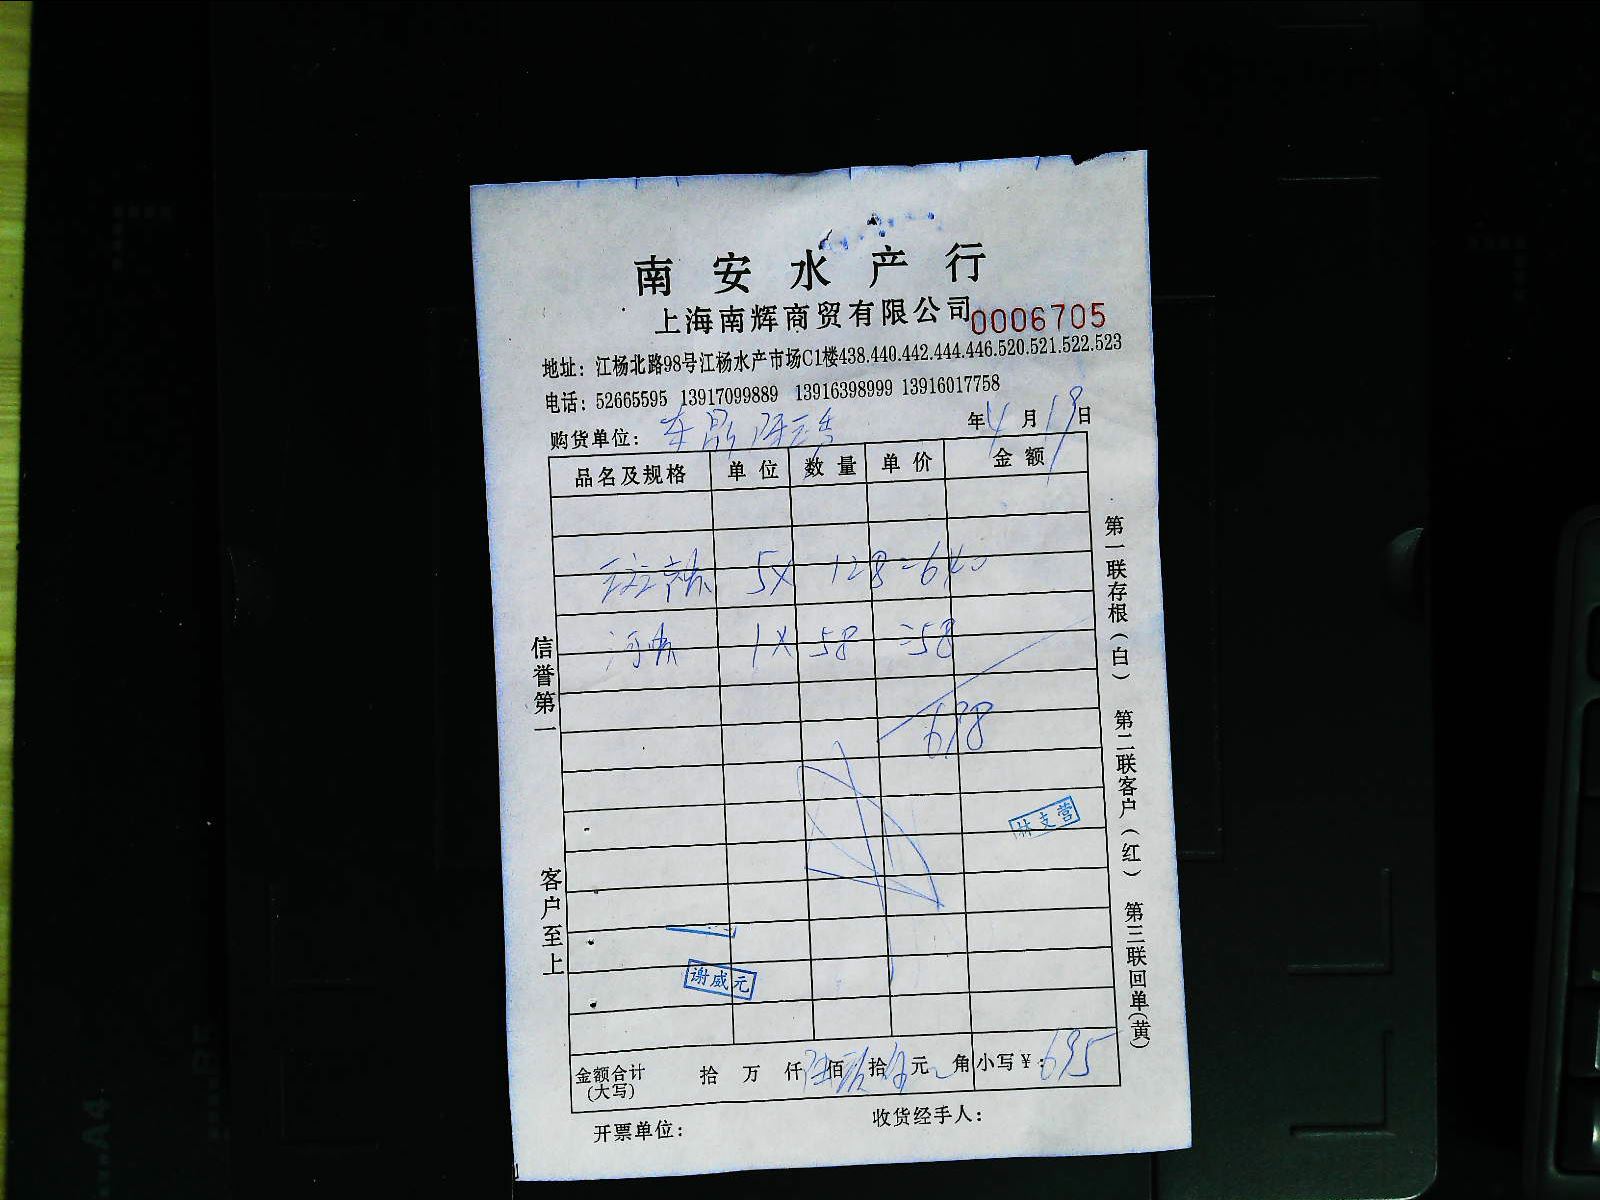 南安水产行
上海南辉商贸有限公司 0006705
地址：江杨北路98号江杨水产市场C1楼438.440.442.444.446.520.521.522.523
电话：52665595 13917099889 13916398999 13916017758
购货单位： 年4月19日
品名及规格 单位 数量 单价 金额
5X 128=640
1X 58=58
698
林支营
谢威元
金额合计(大写) 拾 万 仟 佰 拾 元 角 小写￥：695
开票单位： 收货经手人：
信誉第一
客户至上
第一联存根(白) 第二联客户(红) 第三联回单(黄)